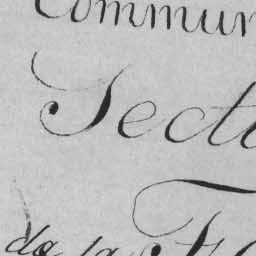 Commun
Secti
de la F